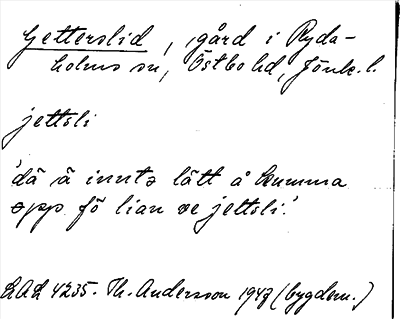 Getterslid, gård i Ryda-
holms sn, Östbo hd, Jönk. l.
jettsli
'dä ä innte lätt å kumma
opp fö lian ve jettsli.'
LAL 4235. Th. Andersson 1947 (bygdem.)